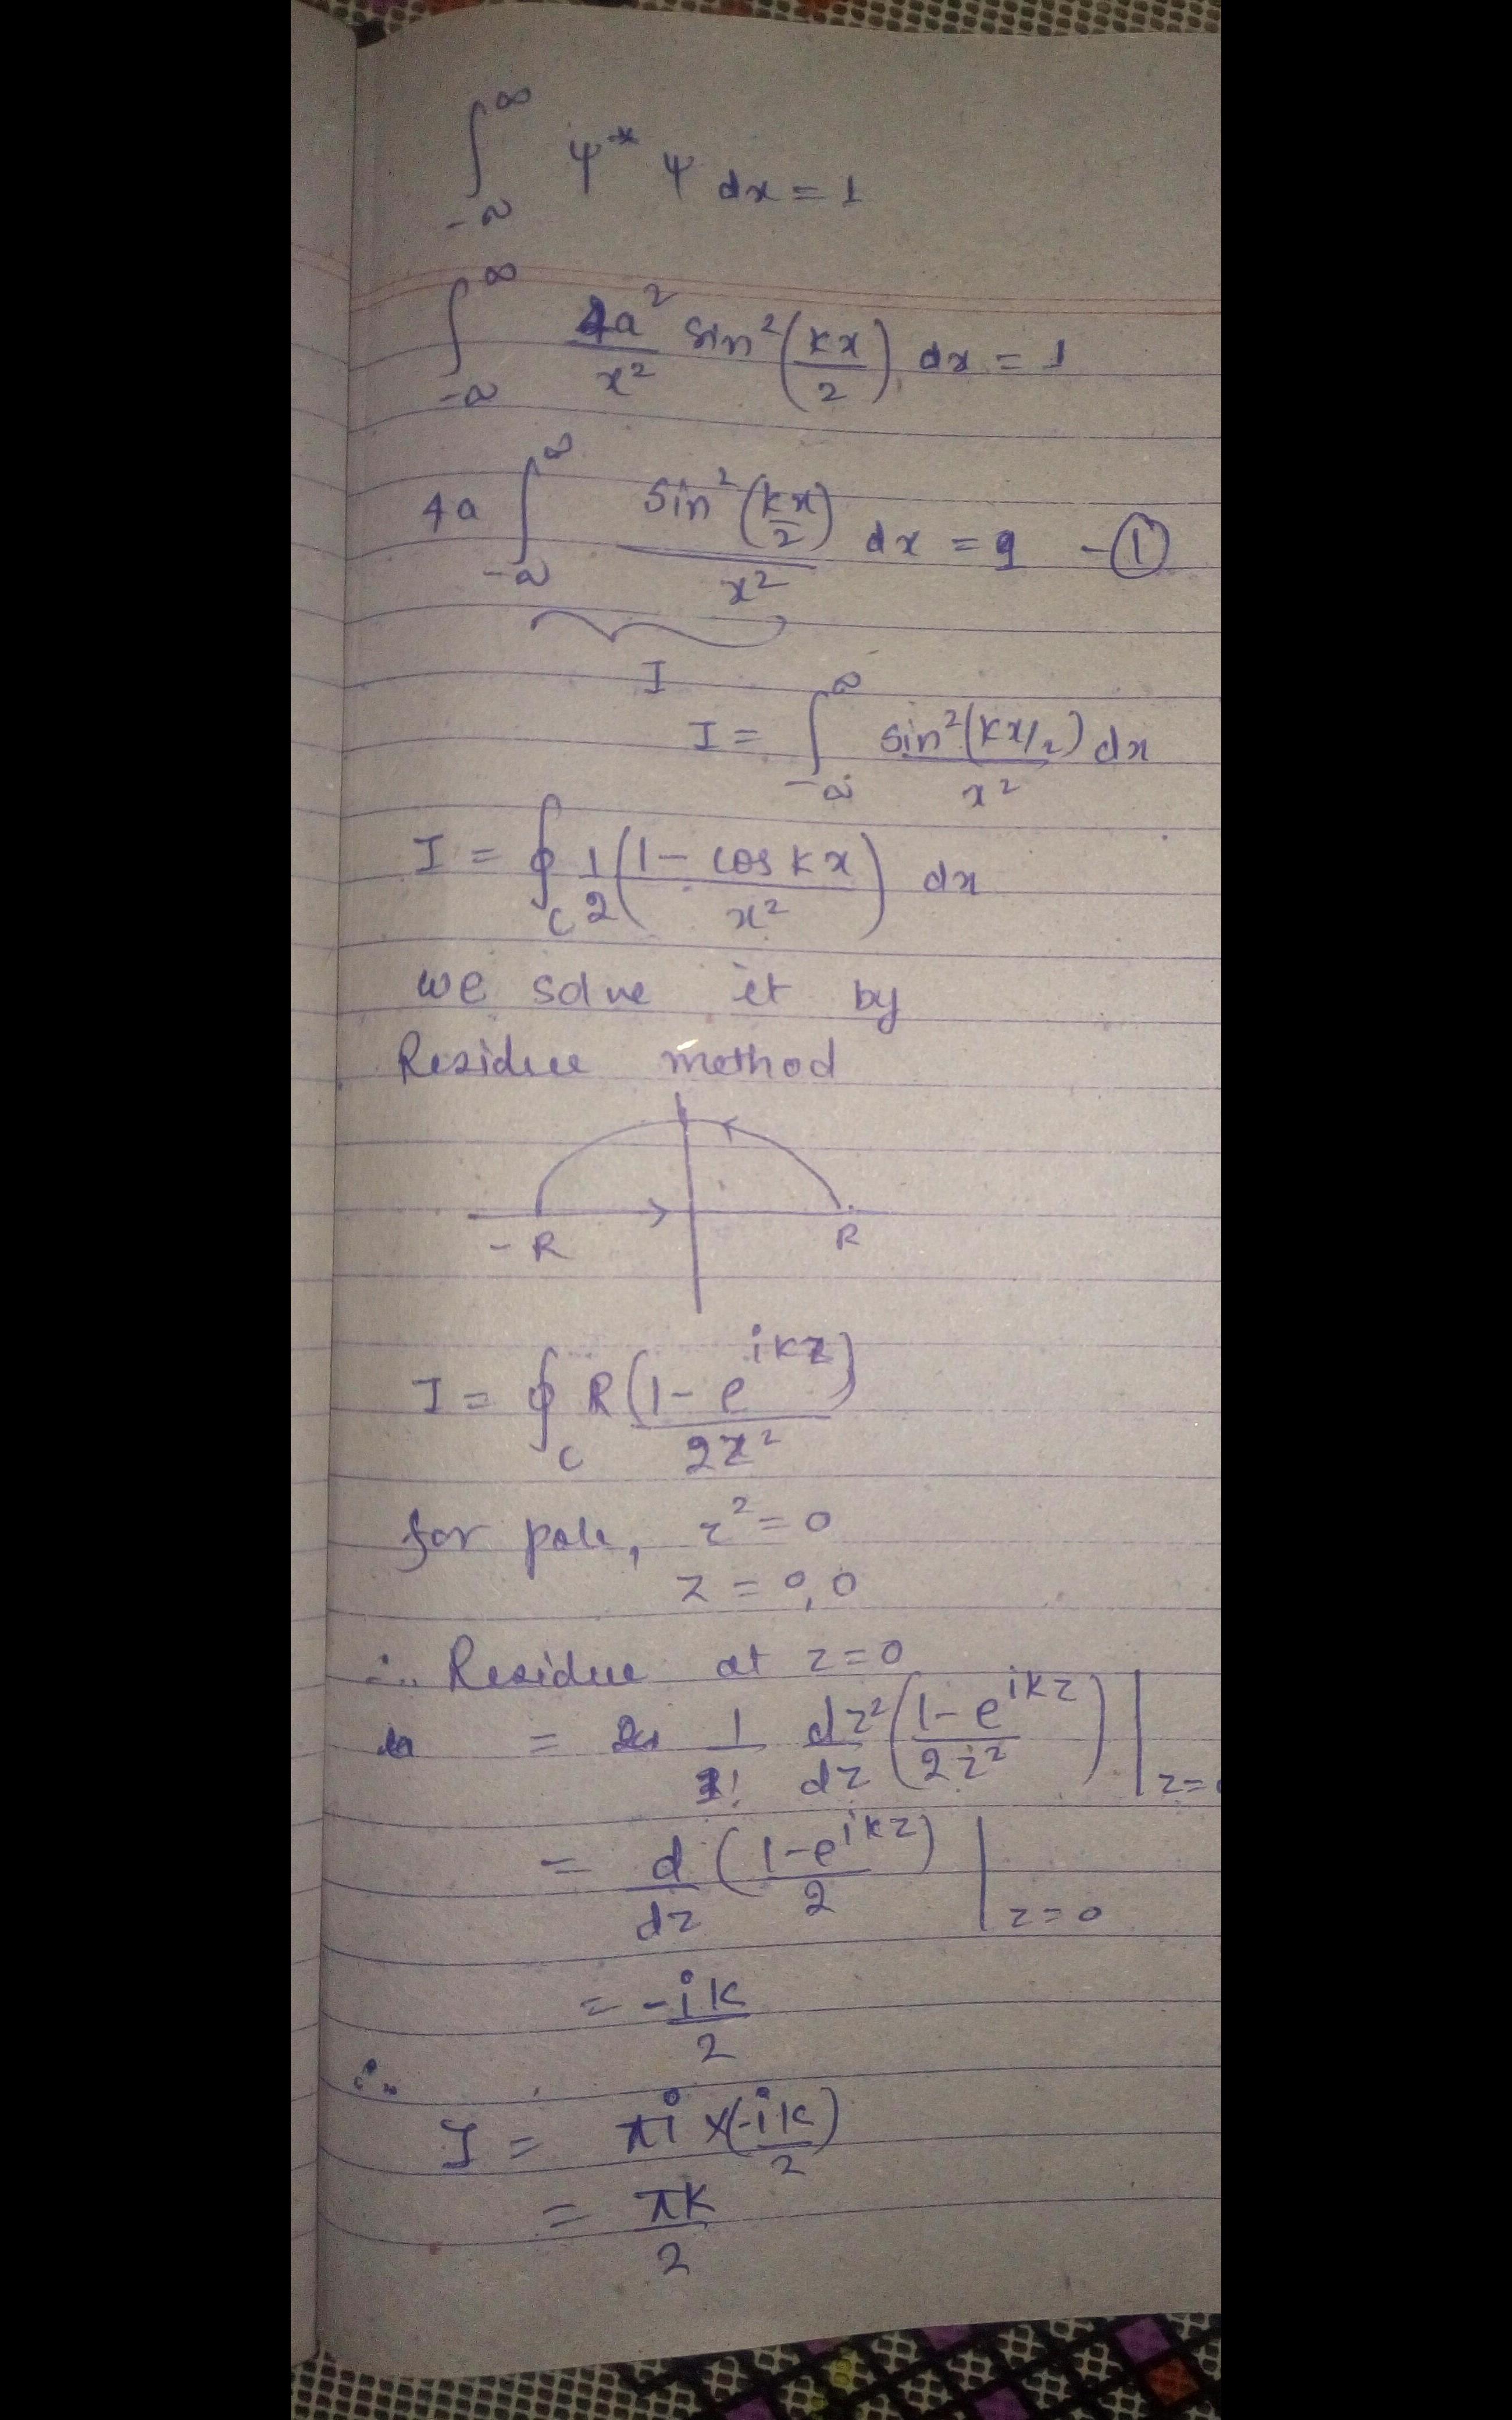 ∫_{-∞}^{∞} ψ* ψ dx = 1
∫_{-∞}^{∞} 4a²/x² sin²(kx/2) dx = 1
4a ∫_{-∞}^{∞} sin²(kx/2)/x² dx = 1 - ①
I
I = ∫_{-∞}^{∞} sin²(kx/2)/x² dx
I = ∮_C 1/2 (1 - cos kx / x²) dx
we solve it by
Residue method
-R R
I = ∮_C R(1 - e^{ikz})/2z²
for pole, z² = 0
z = 0, 0
∴ Residue at z = 0
= 1/1! d/dz z² (1 - e^{ikz} / 2z²) |_{z=0}
= d/dz (1 - e^{ikz} / 2) |_{z=0}
= -ik/2
∴
I = πi × (-ik/2)
= πk/2